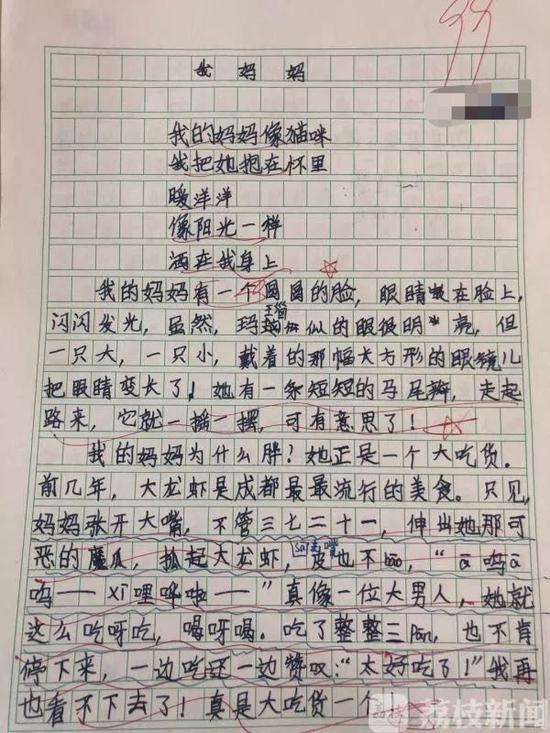 99
我妈妈
我的妈妈像猫咪
我把她抱在怀里
暖洋洋
像阳光一样
洒在我身上
我的妈妈有一个圆圆的脸，眼睛在脸上，
闪闪发光，虽然，玛似的眼很明亮，但
一只大，一只小，戴着的那幅大方形的眼镜儿
把眼睛变长了！她有一条短短的马尾辫，走起
路来，它就一摇一摆，可有意思了！
我的妈妈为什么胖？她正是一个大吃货。
前几年，大龙虾是成都最最流行的美食。只见，
妈妈张开大嘴，不管三七二十一，伸出她那可
恶的魔爪，抓起大龙虾，皮也不bāo，“ā呜ā
呜——xī哩哗啦——”真像一位大男人，她就
这么吃呀吃，喝呀喝。吃了整整三Pán，也不肯
停下来，一边吃还一边赞叹：“太好吃了！”我再
也看不下去了！真是大吃货一个
荔枝新闻